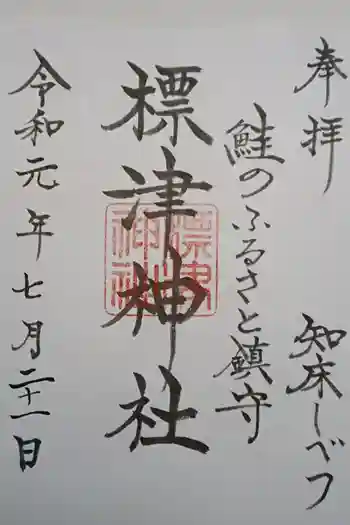 奉拝
知床しべつ
鮭のふるさと鎮守
標津神社
標津神社
令和元年七月二十一日